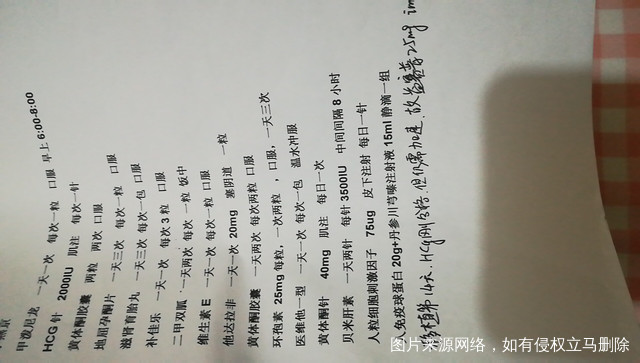 甲泼尼龙 一天一次 每次一粒 口服 早上 6:00-8:00
HCG 针 2000IU 肌注 每次一针
黄体酮胶囊 两粒 两次 口服
地屈孕酮片 一天三次 每次一粒 口服
滋肾育胎丸 一天三次 每次一包 口服
补佳乐 一天一次 每次 3 粒 口服
二甲双胍 一天两次 每次 一粒 饭中
维生素 E 一天一次 每次一粒 口服
他达拉非 一天一次 20mg 塞阴道 一粒
黄体酮胶囊 一天两次 每次两粒 口服
环孢素 25mg 每粒，一次两粒，口服，一天三次
医维他一型 一天一次 每次一包 温水冲服
黄体酮针 40mg 肌注 每日一次
贝米肝素 一天两针 每针 3500IU 中间间隔 8 小时
人粒细胞刺激因子 75ug 皮下注射 每日一针
人免疫球蛋白 20g+丹参川芎嗪注射液 15ml 静滴一组
移植第14天，HCG刚合格，但仍需加速，故 25mg im
图片来源网络，如有侵权立马删除